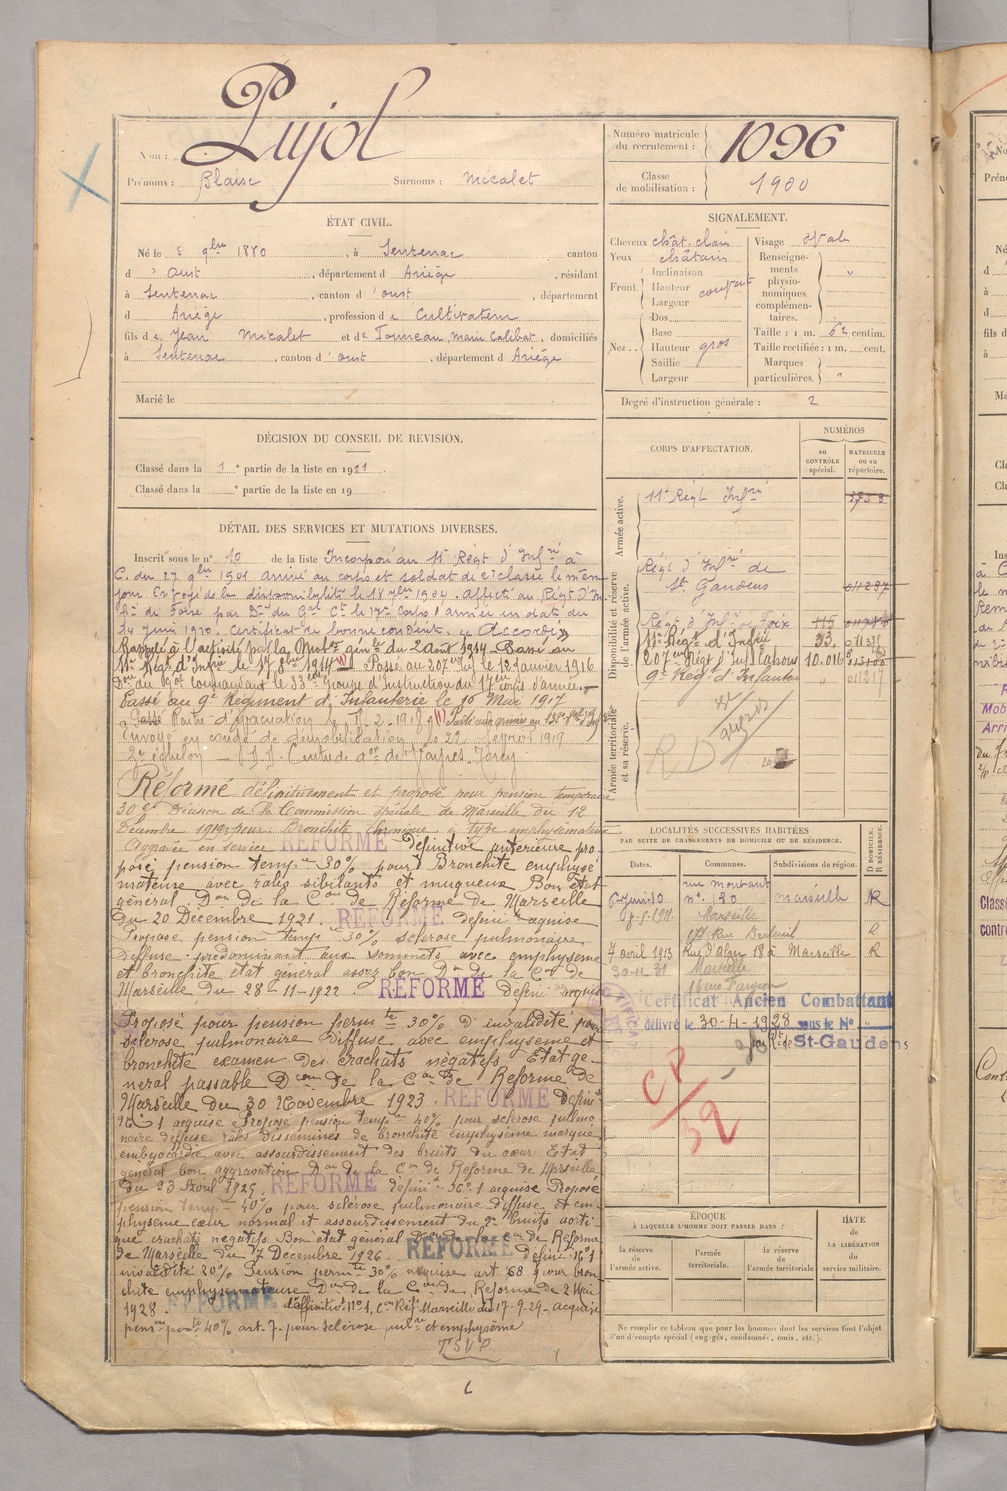 Nom : Pujol
Prénoms : Blaise Surnoms : Micalet
Numéro matricule du recrutement : 1096
Classe de mobilisation : 1900
ÉTAT CIVIL.
Né le 5 9bre 1880, à Sentenac canton
d' Oust, département d Ariège, résidant
à Sentenac, canton d'oust, département
d Ariège, profession de Cultivateur
fils de Jean Micalet et de domiciliés
à Sentenac, canton d'oust, département d Ariège
Marié le
SIGNALEMENT.
Cheveux chât. clair
Yeux châtain
Front. Inclinaison
Hauteur
Largeur
Nez. Dos
Base
Hauteur gros
Saillie
Largeur
Visage Ovale
Renseignements physionomiques complémentaires. "
Taille : 1 m. 62 centim.
Taille rectifiée : 1 m. cent.
Marques particulières. "
Degré d'instruction générale : 2
DÉCISION DU CONSEIL DE REVISION.
Classé dans la 1e partie de la liste en 1921
Classé dans la e partie de la liste en 19
DÉTAIL DES SERVICES ET MUTATIONS DIVERSES.
Inscrit sous le n° 10 de la liste Incorporé au 11e Régt d'Infrie à
C. du 27 9bre 1901 arrivé au corps et soldat de 2e classe le même
jour. En congé de disponibilité le 18 7bre 1904. Affecté au Régt d'Inf
de Foix par Don du Gal Ct le 17e Corps d'armée en date du
24 Juin 1910. Certificat de bonne conduite "Accordé"
Rappelé à l'activité par la Mobon génle du 2 août 1914. Passé au
11e Régt d'Infrie le 17 8bre 1914 (1) Passé au 207e Inf le 12 Janvier 1916
Don du Gal Commandant le 33e Groupe d'Instruction du 17e corps d'armée.
Passé au 9e Régiment d'Infanterie le 10 Mai 1917
Envoyé en congé de démobilisation le 22 février 1919
Réformé définitivement et proposé pour pension temporaire
30% Décision de la Commission spéciale de Marseille du 12
Décembre 1919 pour : Bronchite chronique à type emphysémateux
Aggravée en service RÉFORMÉ définitive antérieure pro
posé pension tempre 30% pour Bronchite emphysé
mateuse avec râles sibilants et muqueux Bon état
général. Don de la Con de Réforme de Marseille
du 20 Décembre 1921. RÉFORMÉ défini acquise
Proposé pension temp 30% sclérose pulmonaire
diffuse prédominant aux sommets avec emphysème
et bronchite état général assez bon Don de la Con de
Marseille du 28-11-1922. RÉFORMÉ défini acquise
Proposé pour pension permte 30% d'invalidité pour
sclérose pulmonaire diffuse avec emphysème et
bronchite examen des crachats négatifs Etat gé-
néral passable Don de la Con de Réforme de
Marseille du 30 Novembre 1923. RÉFORMÉ défini
N° 1 acquise Proposé pension tempre 40% pour sclérose pulmo
naire diffuse râles disséminés de bronchite emphysème marqué
embryocardie avec assourdissement des bruits du cœur Etat
général bon aggravation Don de la Con de Réforme de Marseille
du 23 Avril 1925. RÉFORMÉ défini N° 1 acquise Proposé
pension temp. 40% pour sclérose pulmonaire diffuse et em-
physème cœur normal et assourdissement du 2e bruits aorti-
que crachats négatifs Bon état général Don de la Con de Réforme
de Marseille du 7 Décembre 1926. RÉFORMÉ défini N° 1
invalidité 20% Pension permte 30% acquise art 68 pour bron
chite emphysémateuse Don de la Con de Réforme de 2 Mai
1928. RÉFORMÉ définitivt N° 1, Con Réf. Marseille du 17-9-29 - acquise
pension perte 40% art. 7 - pour sclérose pulre et emphysème
T.S.V.P.
CORPS D'AFFECTATION.
NUMÉROS
AU CONTRÔLE spécial.
MATRICULE ou au répertoire.
Armée active.
11e Régt Infrie 3753
Disponibilité et réserve de l'armée active.
Régt d'Infrie de St Gaudens 011237
Régt d'Infrie de Foix 115
11e Régt d'Infrie 23.
207e Régt d'Inf Cahors 10.016
9e Régt d'Infanterie " 011217
Armée territoriale et sa réserve.
RD
LOCALITÉS SUCCESSIVES HABITÉES
PAR SUITE DE CHANGEMENTS DE DOMICILE OU DE RÉSIDENCE.
Dates. Communes. Subdivisions de région. D DOMICILE. R RÉSIDENCE.
n° 120 Marseille R
Marseille R
7 avril 1913 Rue d'Alger 18 à Marseille R
30-11-31 Marseille
Certificat Ancien Combattant
délivré le 30-4-1928 sous le N°
St-Gaudens
CP
52
ÉPOQUE
À LAQUELLE L'HOMME DOIT PASSER DANS :
la réserve de l'armée active.
l'armée territoriale.
la réserve de l'armée territoriale
DATE DE LA LIBÉRATION du service militaire.
Ne remplir ce tableau que pour les hommes dont les services font l'objet
d'un décompte spécial (engagés, condamnés, omis, etc.).